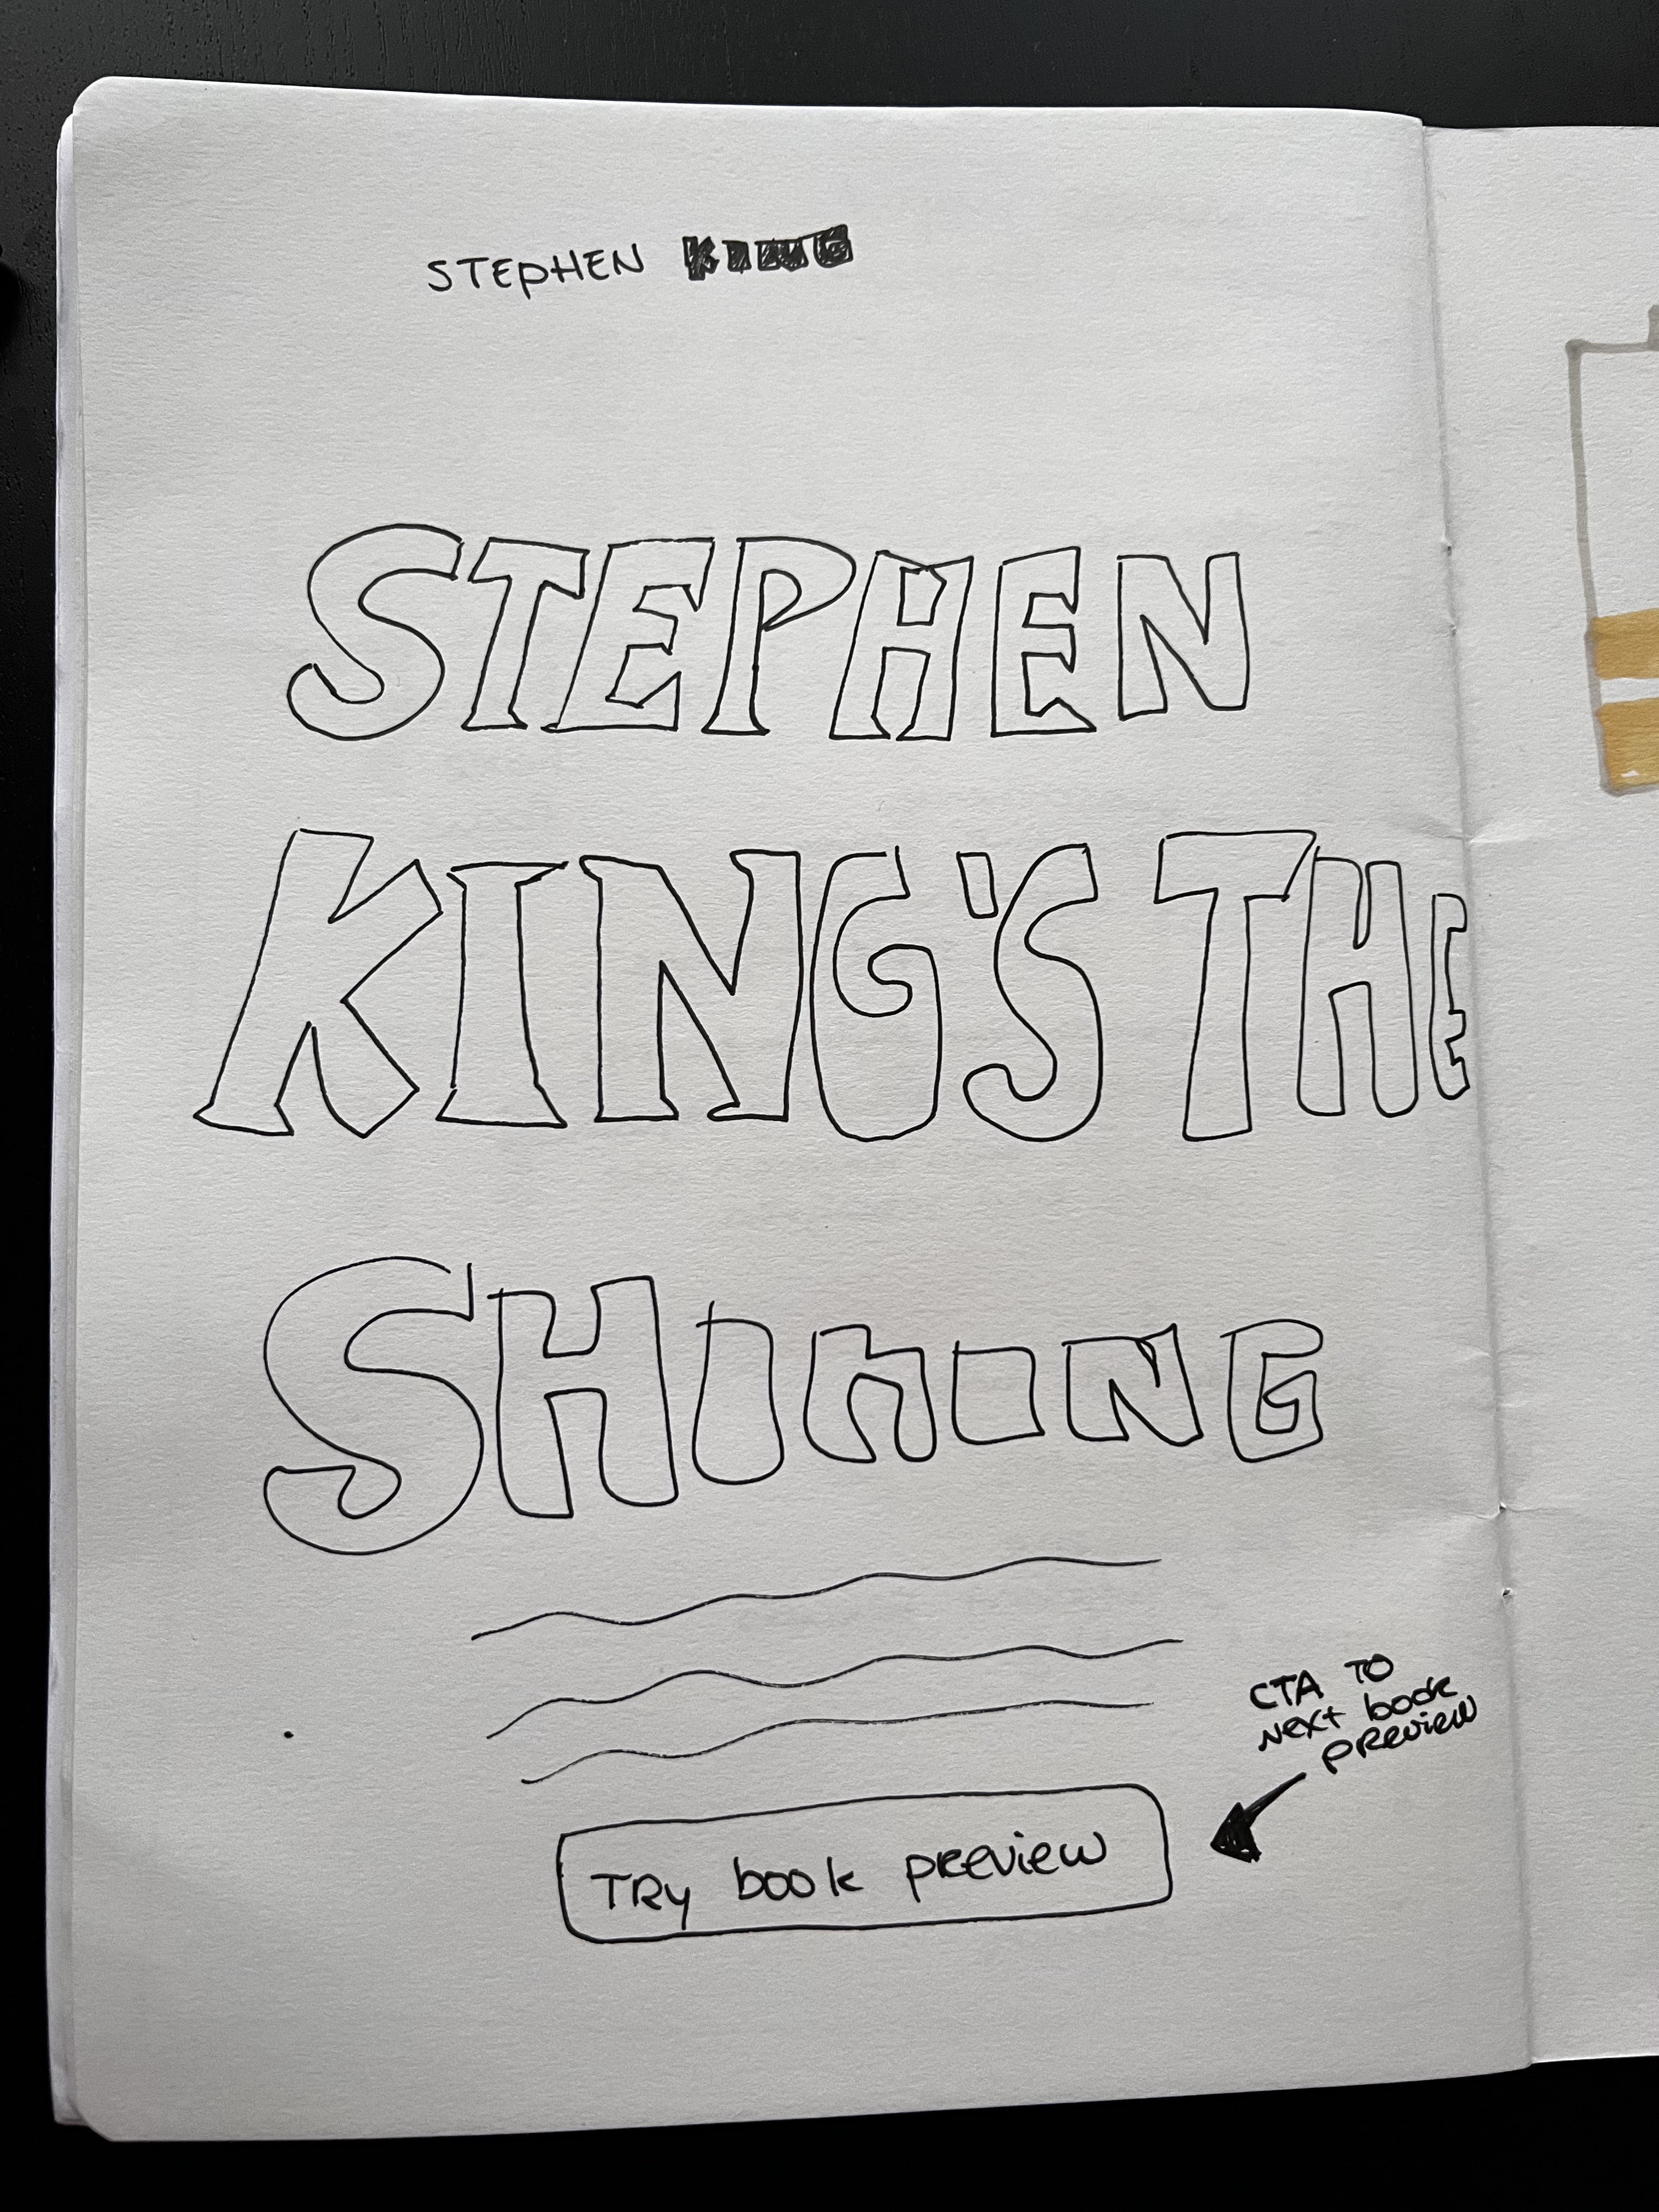 STEPHEN KING
STEPHEN
KING'S THE
SHINING
CTA TO
NEXT book
PREVIEW
TRY book PREVIEW